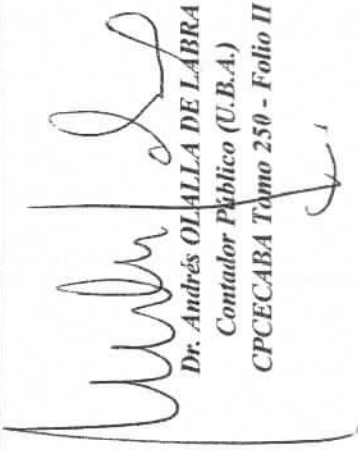 Dr. Andrés OLALLA DE LABRA
Contador Público (U.B.A.)
CPCECABA Tomo 250 - Folio II